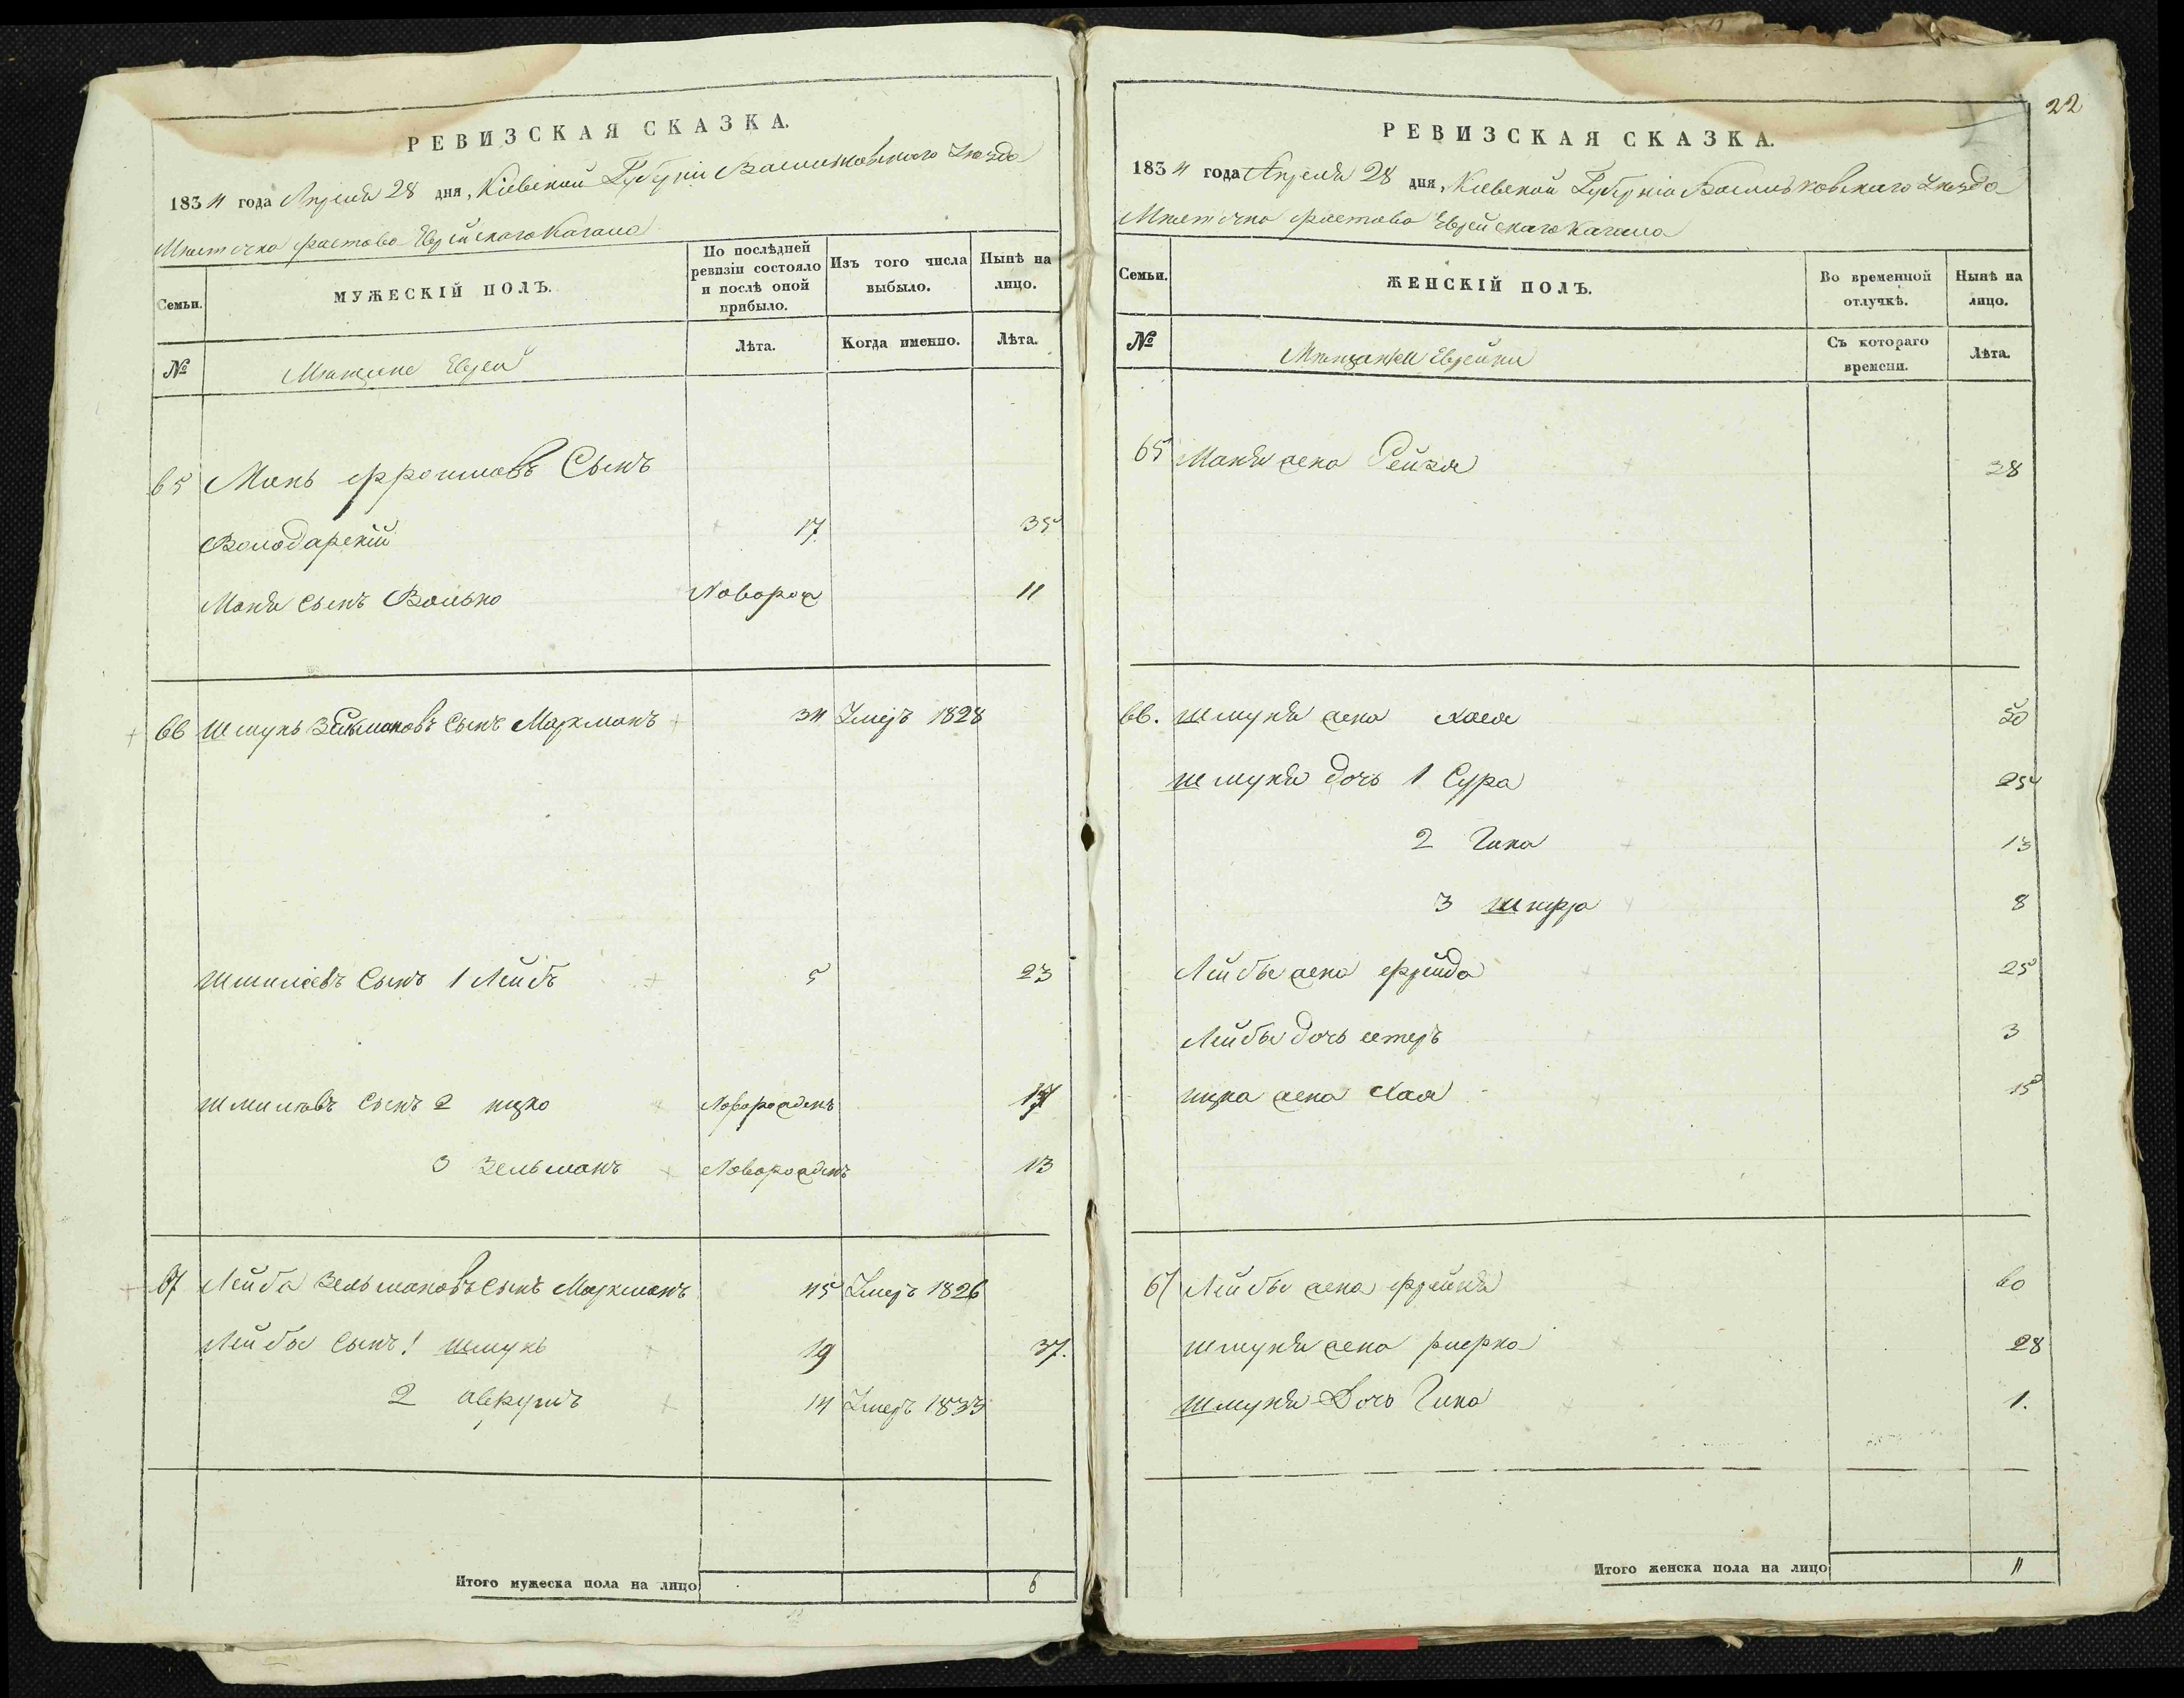 РЕВИЗСКАЯ СКАЗКА.
1834 года Апреля 28 дня, Кіевской Губерніи Васильковскаго Уѣзда
Мѣстечка Фастова Еврейскаго Кагала
Семьи.
МУЖЕСКІЙ ПОЛЪ.
По послѣдней ревизіи состояло и послѣ оной прибыло.
Изъ того числа выбыло.
Нынѣ на лицо.
№
Мѣщане Евреи
Лѣта.
Когда именно.
Лѣта.
65 Мань Сынъ
Володарскій 17 35
Маня сынъ Волько Новорож 11
66 Шмунь Зельмановъ Сынъ Маркманъ 34 Умеръ 1828
Сынъ 1 Лейбъ 5 23
Сынъ 2 ицко Новорожденъ
3 Зельманъ Новорожденъ 13
67 Лейба Зельмановъ Сынъ Маркманъ 45 Умеръ 1826
Лейбы Сынъ 1 Шмунь 19 37.
2 Авкумъ 14 Умеръ 1833
Итого мужеска пола на лицо 6
22
РЕВИЗСКАЯ СКАЗКА.
1834 года Апреля 28 дня, Кіевской Губерніи Васильковскаго Уѣзда
Мѣстечка Фастова Еврейскаго Кагала
Семьи.
ЖЕНСКІЙ ПОЛЪ.
Во временной отлучкѣ.
Нынѣ на лицо.
№
Мѣщанки Еврейки
Съ котораго времени.
Лѣта.
65 Маня жена Рейзя 28
66. Шмуня жена Хася 50
Шмуня дочь 1 Сура 25
2 Гика 13
3 Шифра 8
Лейбы жена Фрейда 25
Лейбы дочь естеръ 3
ицка жена Хая 15
67 Лейбы жена Фрейня 60
Шмуня жена ривка 28
Шмуня Дочь Гика 1.
Итого женска пола на лицо 11